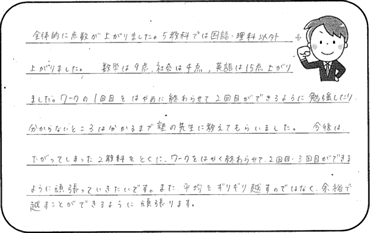 全体的に点数が上がりました。5教科では国語・理科以外
上がりました。 数学は9点、社会は4点、英語は15点上がり
ました。ワークの1回目をはやめに終わらせて2回目ができるように勉強したり
分からないところは分かるまで塾の先生に教えてもらいました。 今後は、
下がってしまった2教科をとくに、ワークをはやく終わらせて2回目・3回目ができる
ように頑張っていきたいです。また 平均をギリギリ越すのではなく、余裕で
越すことができるように 頑張ります。